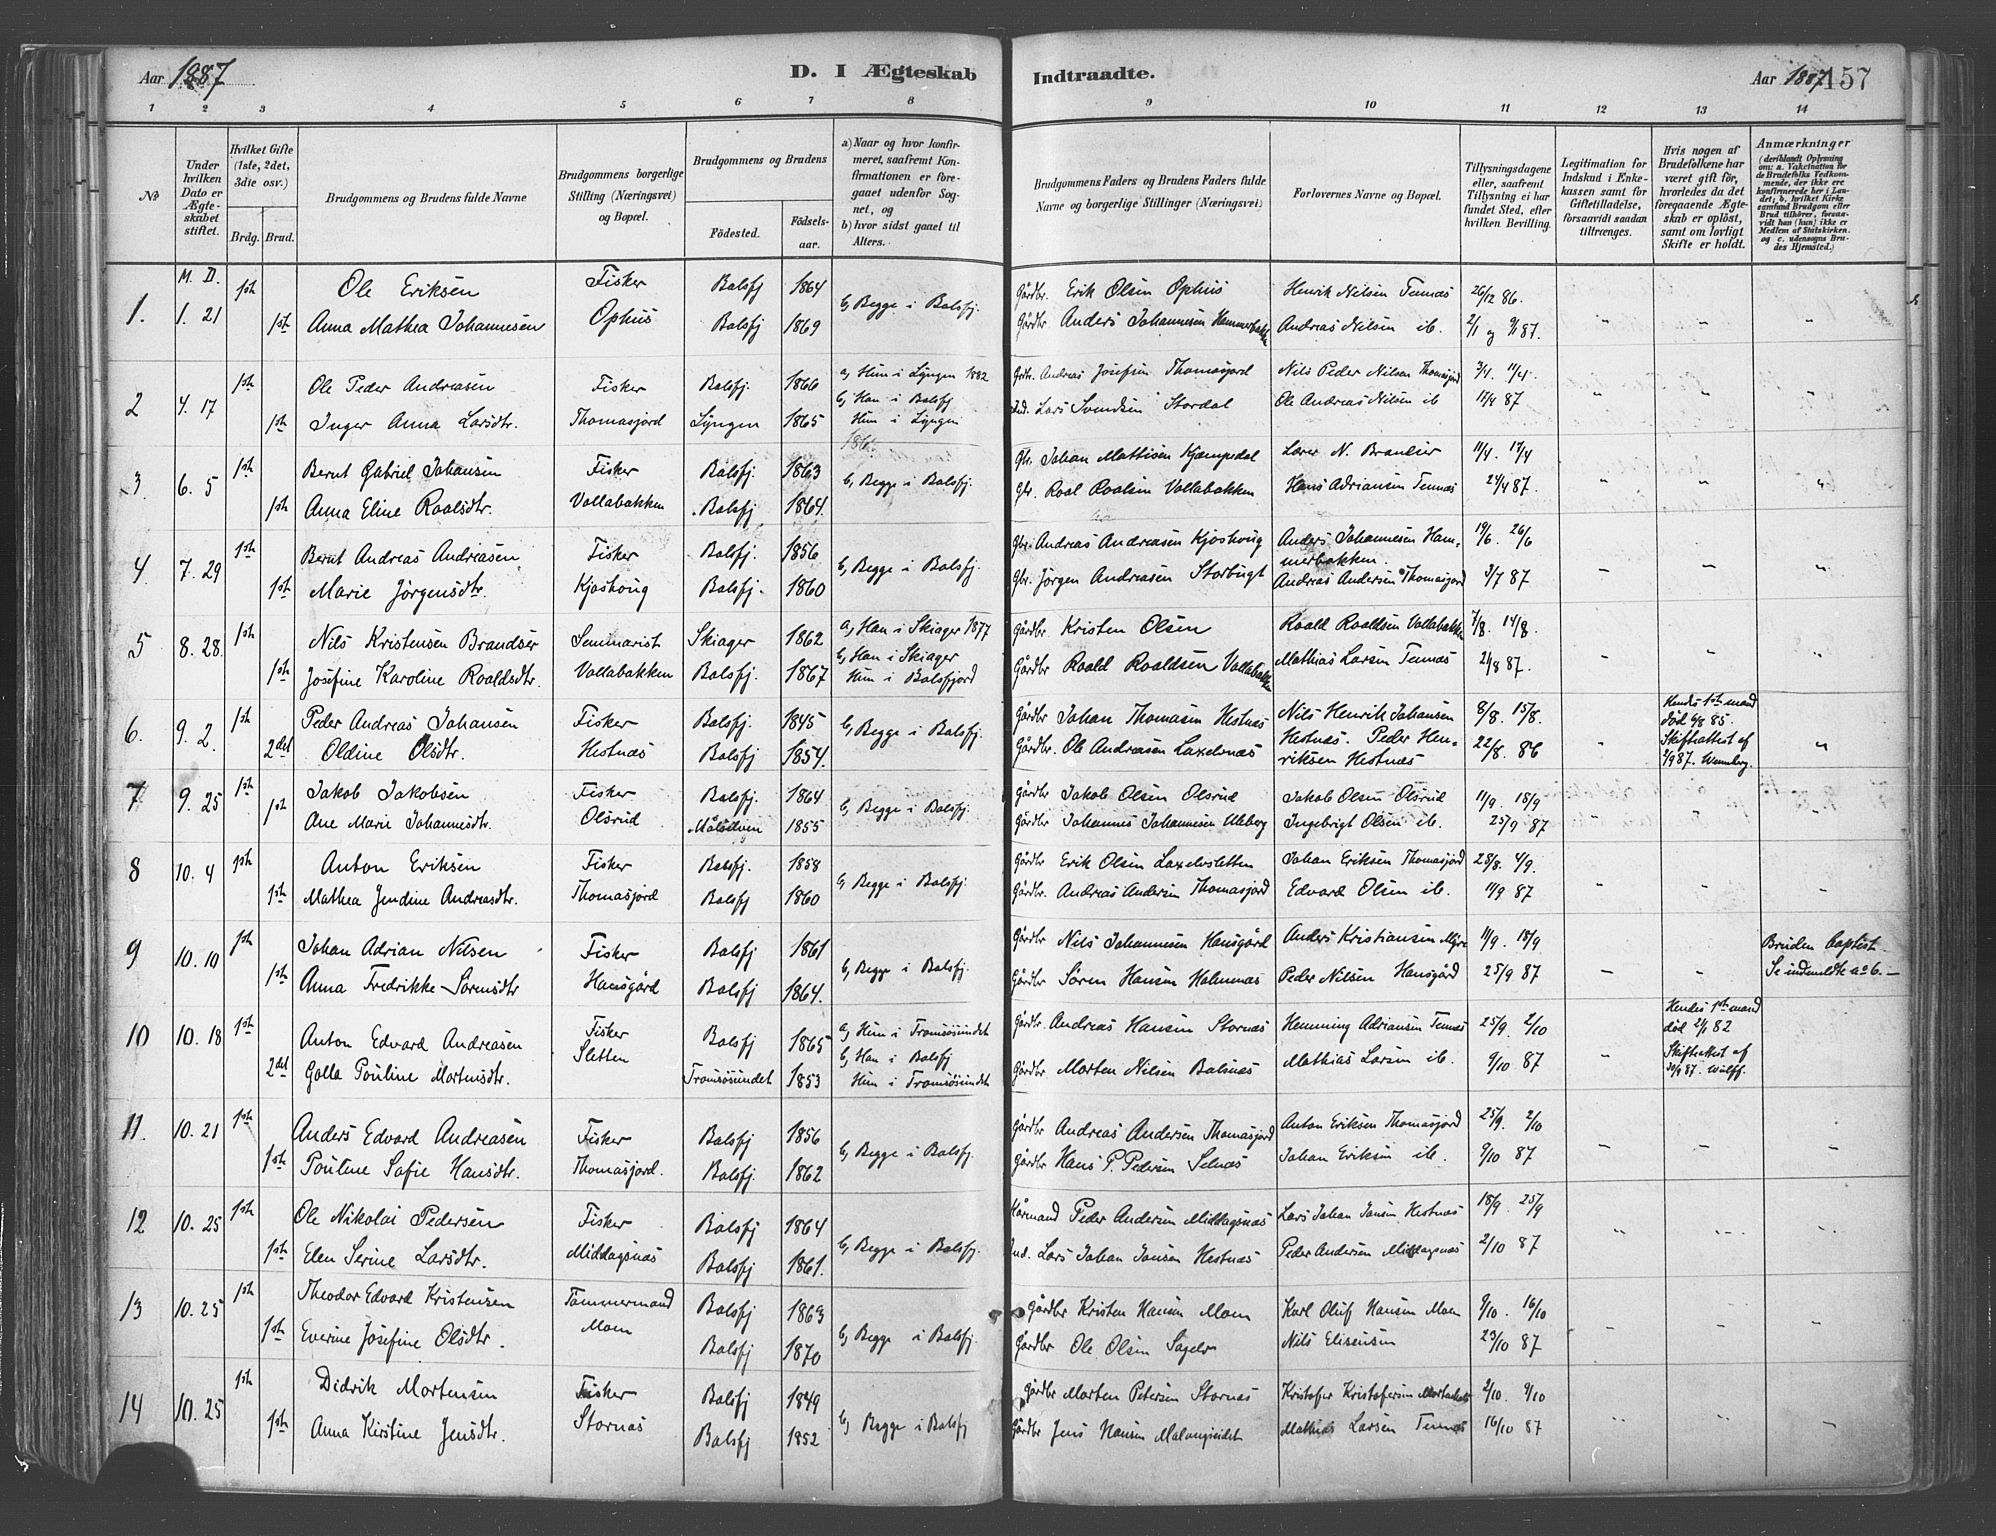 Aar 1887
D. I Ægteskab Indtraadte.
Aar 1887 157
1 2 3 4 5 6 7 8 9 10 11 12 13 14
No
Under hvilken Dato er Ægteskabet stiftet.
Hvilket Gifte (1ste, 2det, 3die osv.)
Brdg. Brud.
Brudgommens og Brudens fulde Navne
Brudgommens borgerlige Stilling (Næringsvei) og Bopæl.
Brudgommens og Brudens
Fødested. Fødselsaar.
a) Naar og hvor konfirmeret, saafremt Konfirmationen er foregaaet udenfor Sognet, og
b) hvor sidst gaaet til Alters.
Brudgommens Faders og Brudens Faders fulde Navne og borgerlige Stillinger (Næringsvei)
Forlovernes Navne og Bopæl.
Tillysningsdagene eller, saafremt Tillysning ei har fundet Sted, efter hvilken Bevilling.
Legitimation for Indskud i Enkekassen samt for Giftetilladelse, forsaavidt saadan tiltrænges.
Hvis nogen af Brudefolkene har været gift før, hvorledes da det foregaaende Ægteskab er opløst, samt om lovligt Skifte er holdt.
Anmærkninger
(deriblandt Oplysning om: a. Vakcination for de Brudefolks Vedkommende, der ikke ere konfirmerede her i Landet; b. hvilket Kirkesamfund Brudgom eller Brud tilhører, forsaavidt han (hun) ikke er Medlem af Statskirken. og c. udensogns Brudes Hjemsted.)
M. D.
1. 1. 21 1ste Ole Eriksen Fisker Balsfj 1864 b, Begge i Balsfj. Gårdbr. Erik Olsen Ophus Henrik Nilsen Tennæs 26/12 86.
1ste Anna Mathea Johannesen Ophus Balsfj 1869 Gårdbr Anders Johannesen Hammerbakken Andreas Nilsen ib. 2/1 og 9/1 87. " " "
2 4. 17 1ste Ole Peder Andreasen Fisker Balsfj. 1866 a, Hun i Lyngen 1882 Gdbr. Andreas Josefsen Thomasjord Nils Peder Nilsen Thomasjord 3/4. 11/4.
b, Han i Balsfj
1ste Inger Anna Larsdtr. Thomasjord Lyngen 1865 Hun i Lyngen Ind. Lars Svendsen Stordal Ole Andreas Nilsen ib 17/4 87 " " "
3. 6. 5 1ste Bernt Gabriel Johansen Fisker Balsfj. 1863 b, Begge i Balsfj. Gbr. Johan Mathisen Kjempedal Lærer N. 11/4. 17/4
1ste Anna Eline Roaldsdtr. Vollabakken Balsfj 1864. Gbr. Roal Roalsen Vollabakken Hans Adriansen Tennæs 24/4 87. " " "
4. 7. 29 1ste Bernt Andreas Andreasen Fisker Balsfj. 1856 b, Begge i Balsfj. Gbr. Andreas Andreasen Kjoshoug Anders Johannesen Hammerbakken. 19/6. 26/6
1ste Marie Jørgensdtr. Kjoshoug Balsfj. 1860 Gbr. Jørgen Andreasen Storbugt Andreas Andersen Thomasjord 3/7 87 " " "
5 8. 28. 1ste Nils Kristensen Brandser Seminarist Skiager 1862 a, Han i Skiager 1877 Gårdbr. Kristen Olsen Roald Roaldsen Vollabakken 7/8. 14/8.
b, Han i Skiager
1ste Josefine Karoline Roaldsdtr. Vollabakken Balsfj. 1867 Hun i Balsfjord Gårdbr Roald Roaldsen Vollabakken Mathias Larsen Tennæs 21/8 87. " " "
6. 9. 2. 1ste Peder Andreas Johansen Fisker Balsfj. 1845 b, Begge i Balsfj. Gårdbr Johan Thomasen Hestnæs Nils Henrik Johansen 8/8. 15/8. Hendes 1ste mand død 6/8 85.
2det Oldine Olsdtr. Hestnæs Balsfj 1854. Gårdbr. Ole Andreasen Laxelvnæs Hestnæs. Peder Henriksen Hestnæs 22/8. 86 " Skifteattest af 2/9 87. Wennberg. "
7 9. 25 1ste Jakob Jakobsen Fisker Balsfj. 1864 b, Begge i Balsfj. Gårdbr Jakob Olsen Olsrud Jakob Olsen Olsrud 11/9. 18/9
1ste Ane Marie Johannesdtr. Olsrud Målselven 1855 Gårdbr Johannes Johannesen Uleberg Ingebrigt Olsen ib. 25/9 87 " " "
8 10. 4 1ste Anton Eriksen Fisker Balsfj. 1858 b, Begge i Balsfj. Gårdbr Erik Olsen Laxelvsletten Johan Eriksen Thomasjord 28/8. 4/9.
1ste Mathea Jendine Andreasdtr. Thomasjord Balsfj 1860 Gårdbr. Andreas Andersen Thomasjord Edvard Olsen ib. 11/9 87 " " "
9 10. 10 1ste Johan Adrian Nilsen Fisker Balsfj 1861 b, Begge i Balsfj. Gårdbr Nils Johannesen Hansgård Anders Kristiansen 11/9. 18/9 Bruden baptist.
1ste Anna Fredrikke Sørensdtr Hansgård Balsfj 1864. Gårdbr Søren Hansen Holmenæs Peder Nilsen Hansgård 25/9 87 " " Se indmeldte no 6. —
10 10. 18 1ste Anton Edvard Andreasen Fisker Balsfj 1865 a, Hun i Tromsøsundet Gårdbr. Andreas Hansen Stornæs Hemming Adriansen Tennæs 25/9. 2/10 Hendes 1ste mand død 2/1 82
b, Han i Balsfj
2det Golla Pouline Mortensdtr. Sletten Tromsøsundet 1853 Hun i Tromsøsundet Gårdbr Morten Nilsen Balsnæs Mathias Larsen ib. 9/10 87 " Skifteattest af 30/9 87. Wulff.
11. 10. 21 1ste Anders Edvard Andreasen Fisker Balsfj 1856 b, Begge i Balsfj. Gårdbr Andreas Andersen Thomasjord Anton Eriksen Thomasjord 25/9. 2/10
1ste Pouline Sofie Hansdtr. Thomasjord. Balsfj. 1862 Gårdbr Hans P. Pedersen Selnæs Johan Eriksen ib. 9/10 87 " " "
12 10. 25 1ste Ole Nikolai Pedersen Fisker Balsfj 1864 b, Begge i Balsfj. Kårmand Peder Andersen Middagsnæs Lars Johan Jansen Hestnæs 18/9. 25/9
1ste Elen Serine Larsdtr. Middagsnæs Balsfj 1861. Ind. Lars Johan Jansen Hestnæs Peder Andersen Middagsnæs 2/10 87 " " "
13 10. 25 1ste Theodor Edvard Kristensen Tømmermand Balsfj 1863 b, Begge i Balsfj. Gårdbr Kristen Hansen Moen Karl Oluf Hansen Moen 9/10. 16/10
1ste Everine Josefine Olsdtr. Moen Balsfj 1870 Gårdbr Ole Olsen Sagelv Nils Elisensen 23/10 87 " " "
14 10. 25 1ste Didrik Mortensen Fisker Balsfj 1849 b, Begge i Balsfj Gårdbr Morten Petersen Stornæs Kristofer Kristofersen 2/10. 9/10
1ste Anna Kirstine Jensdtr. Stornæs Balsfj 1852 Gårdbr Jens Hansen Malangseidet Mathias Larsen Tennæs 16/10 87 " " "